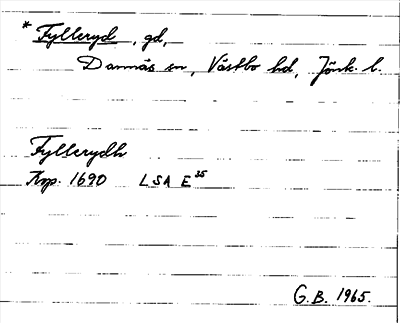 * Fylleryd, gd,
Dannäs sn, Västbo hd, Jönk. l.
Fyllerydh
Kop. 1690 LSA E 35
G.B. 1965.